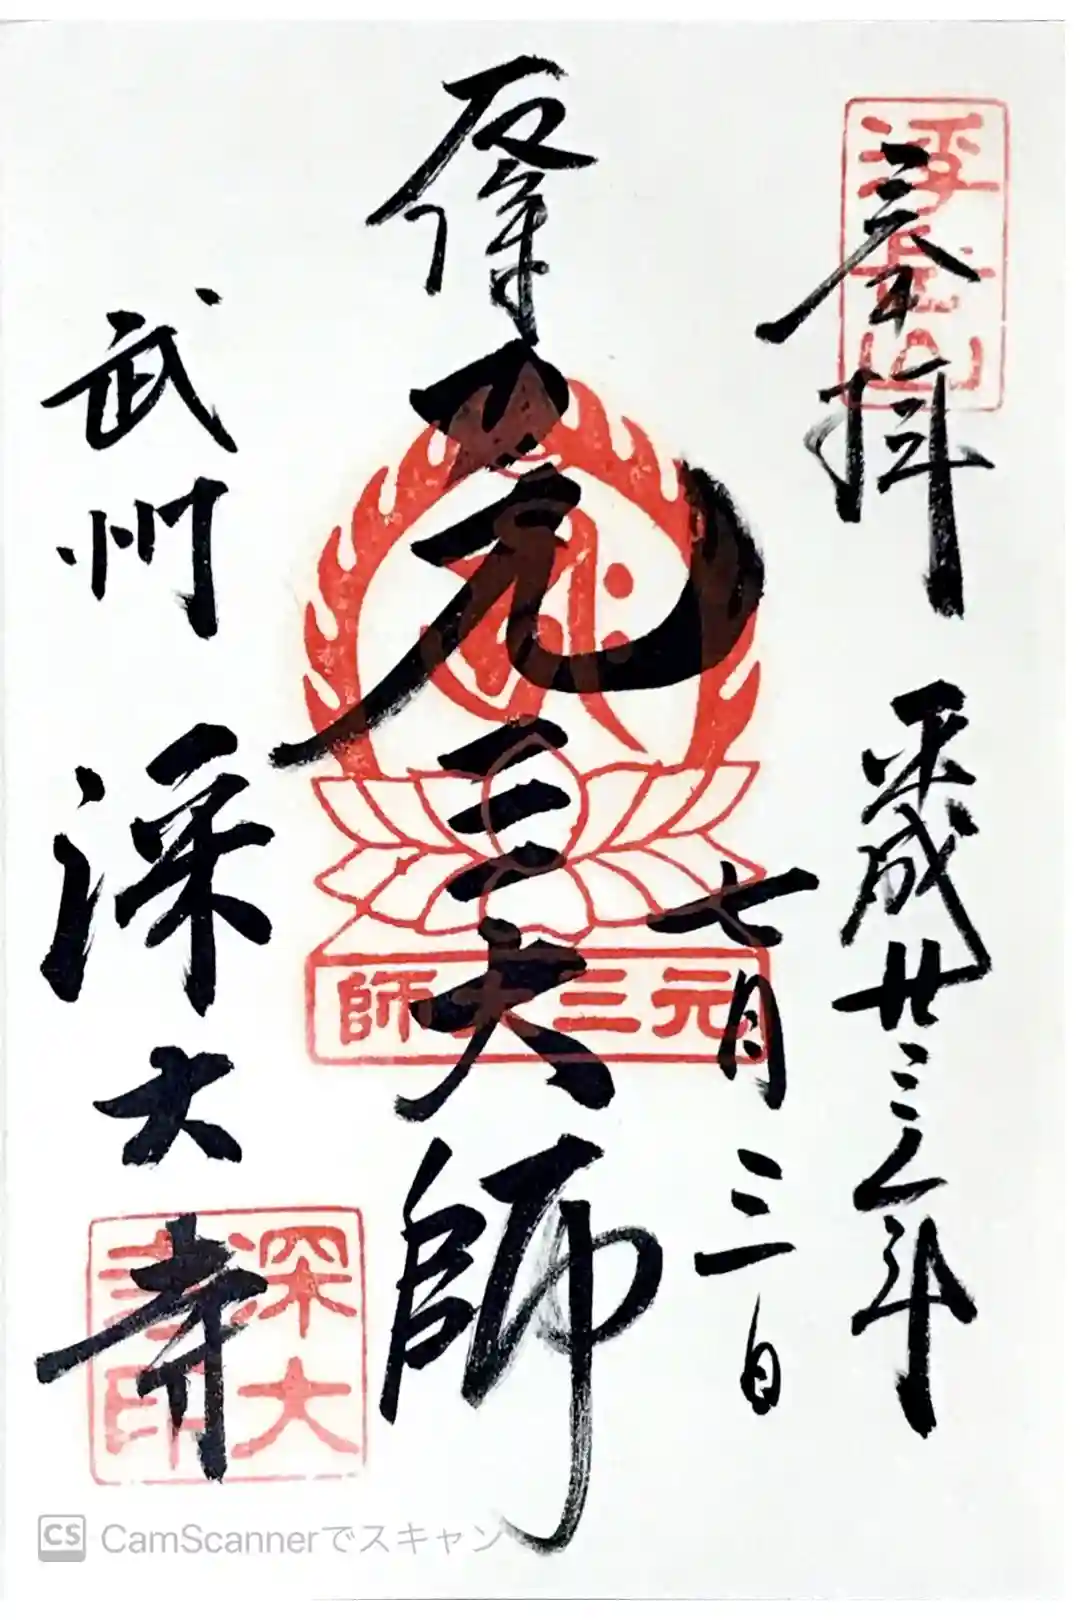 浮岳山
参拝
平成廿三年
七月三日
元三大師
師大三元
武州 深大寺
深大寺印
CS CamScannerでスキャン